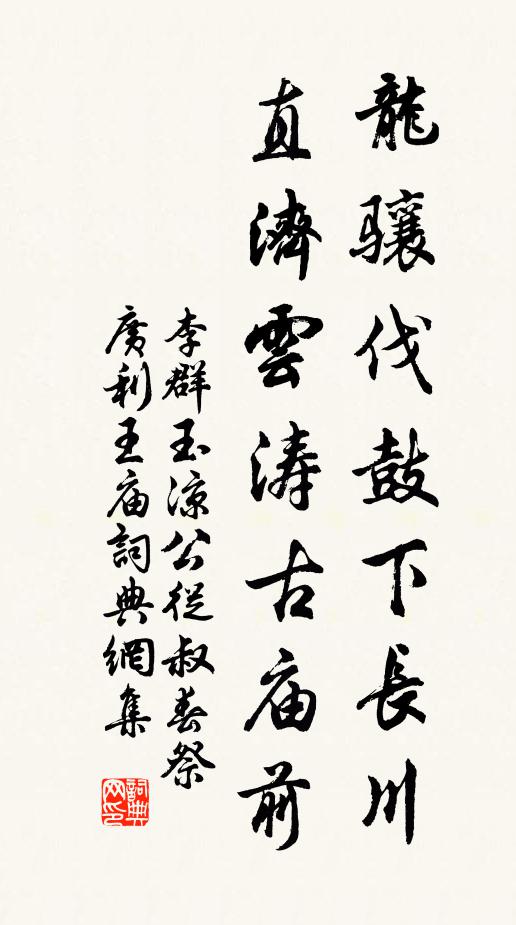 龍驤伐鼓下長川
直濟雲涛古庙前
李群玉凉公從叔春祭
廣利王庙詞典網集
詞典网印